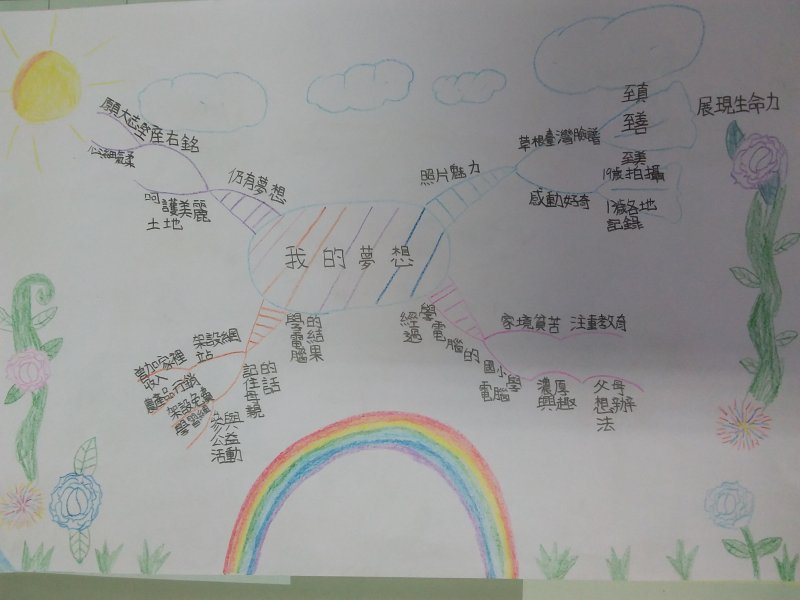 我的夢想
仍有夢想
願大志堅座右銘
心細氣柔
呵護美麗
土地
照片魅力
草根臺灣臉譜
至真
至善
至美
展現生命力
感動好奇
19歲拍攝
1歲各地
記錄
學電腦的
經過
家境貧苦 注重教育
國小學
電腦
濃厚
興趣
父母
想辦
法
學電腦
的結果
架設網
站
增加家裡
收入
農產品行銷
記住母親
的話
架設免費
學習網
參與
公益
活動